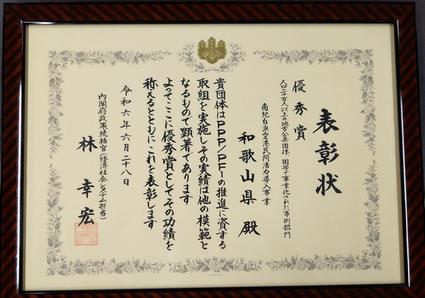 表彰状
優秀賞
人口二十万人以上の地方公共団体・国等で事業化された事例部門
南紀白浜空港民間活力導入事業
和歌山県 殿
貴団体はPPP/PFIの推進に資する
取組を実施しその実績は他の模範と
なるもので顕著であります
よってここに優秀賞としてその功績を
称えるとともにこれを表彰します
令和六年六月二十八日
内閣府政策統括官（経済社会システム担当）
林 幸宏